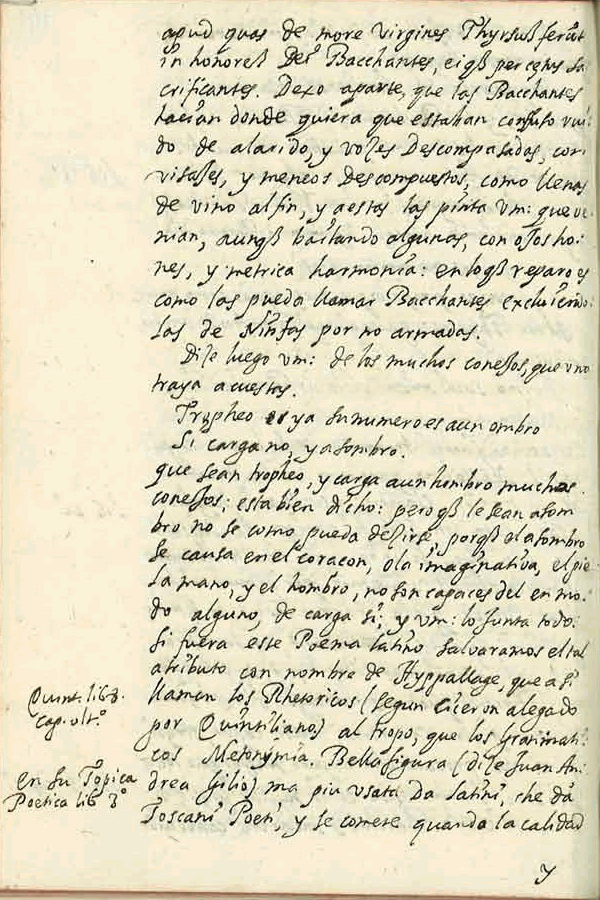 apud quas de more virgines Thyrsuß ferut
in honoreß Dei Bacchantes, eigß per cętus sa
crificantes. Dexo aparte, que las Bacchantes
hacian donde quiera que estaban confuso rui
do de alarido, y vozes Descompasadas, con
visajes, y meneos Descompuestos, como llenas
de vino al fin, y a estas las pinta vm: que ve
nian, aunqß bailando algunas, con ojos ho:
nes, y metrica harmonia: en loqß reparo es
como las pueda llamar Bacchantes excluiendo:
las de Ninfas por no armadas.
Dize luego vm: de los muchos conejos, que vno
traya acuestas.
Tropheo es ya su numero es a un ombro
Si carga no, y asombro.
que sean tropheo, y carga a un hombro muchos
conejos; esta bien dicho: pero qß le sean asom
bro no se como pueda dezirse, porqß el asombro
se causa en el coracon, o la imaginativa, el pie
la mano, y el hombro, no son capaces del en mo:
do alguno, de carga si; y vm: lo junta todo.
Si fuera este Poema latino salvaramos el tal
atributo con nombre de Hyppallage, que asi
llaman los Rhetoricos (segun Ciceron alegado
por Quintiliano) al tropo, que los Gramati:
cos Metonymia. Bella figura (dize Juan An:
drea Gilio) ma piu vsata Da latini, che da
Toscani Poeti, y se comete quando la calidad
y
Quint. lib 8.
cap. vltº
en su Topica
Poetica lib 3º